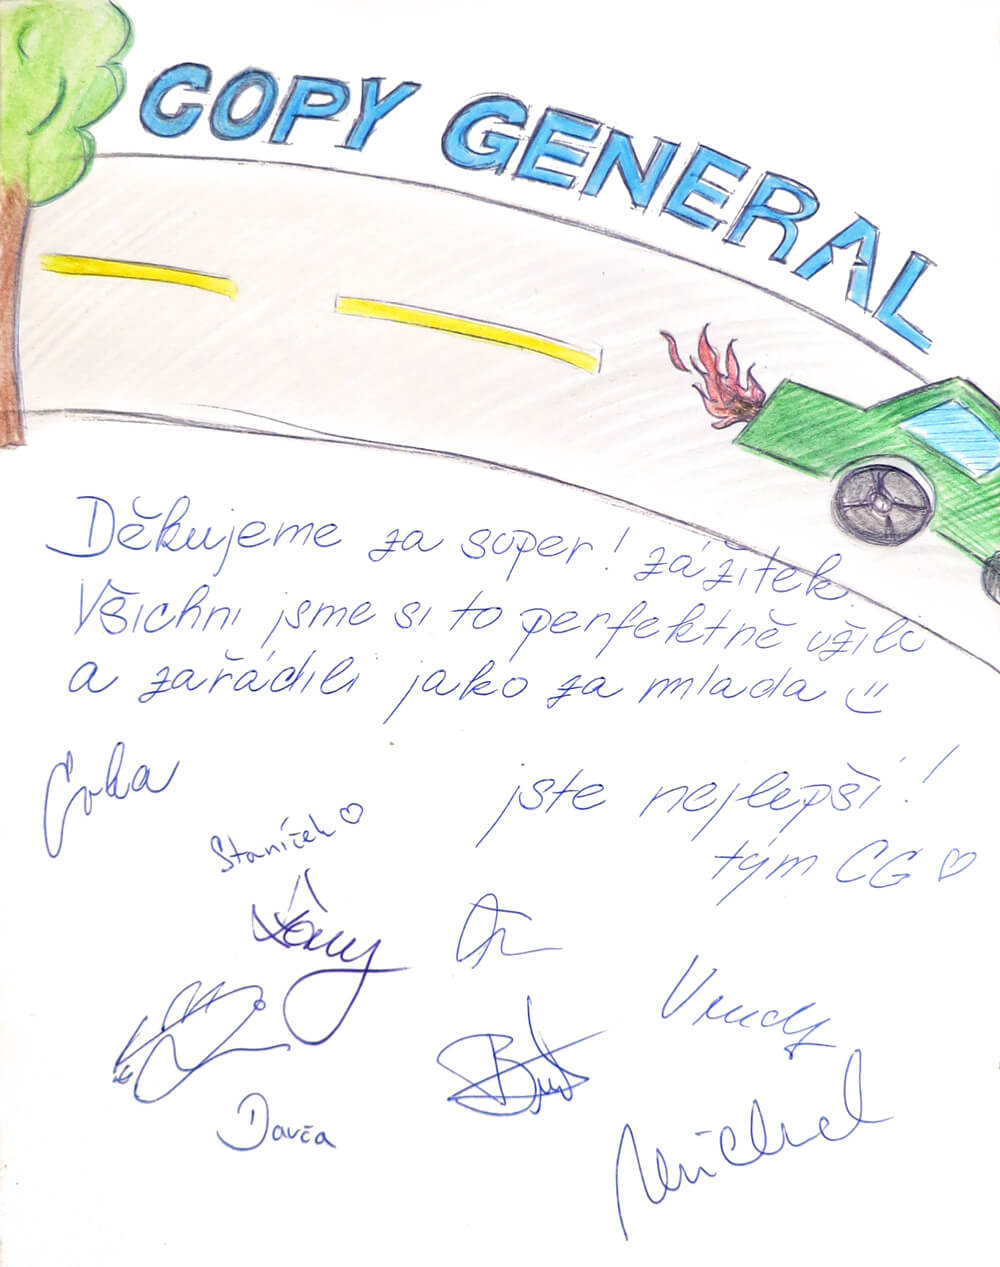 COPY GENERAL
Děkujeme za super! zážitek
Všichni jsme si to perfektně užili
a zařádili jako za mlada
jste nejlepší!
tým CG ♡
Staníček ♡
Vendy
Davča
Michal